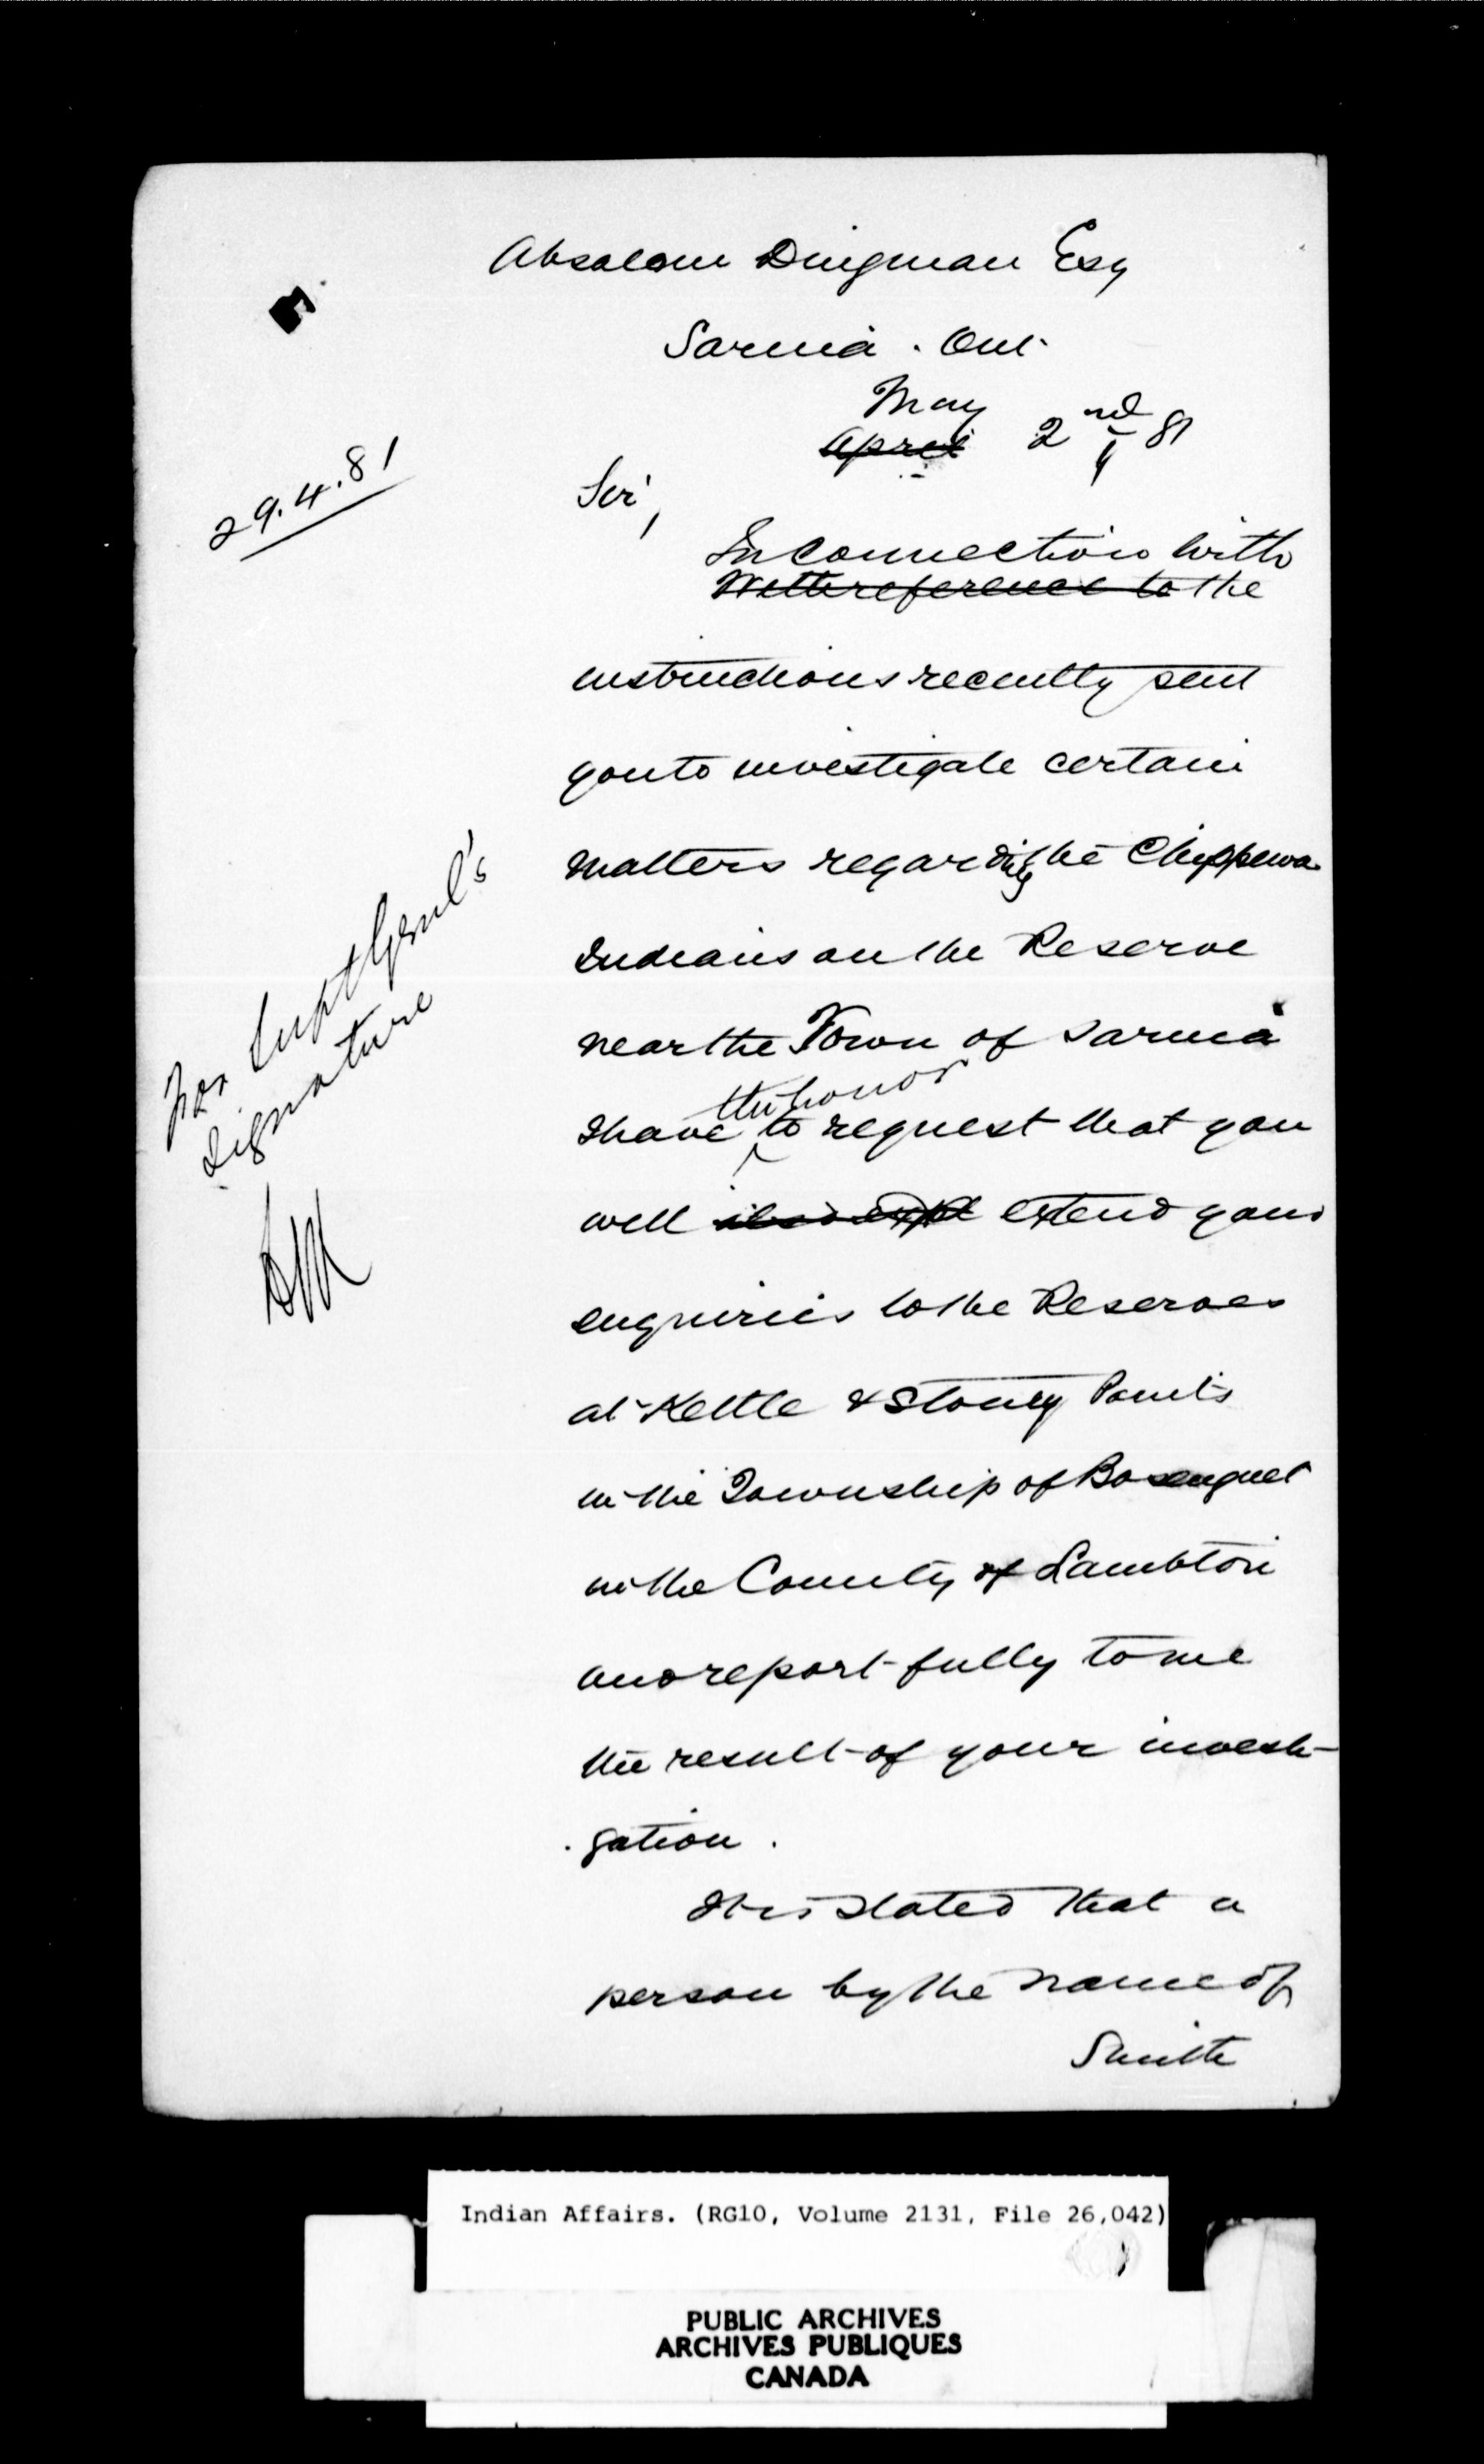 Absalom Dingman Esq
Sarnia . Ont.
May
April 2nd 81
29.4.81
Sir,
In connection with
With reference to the
instructions recently sent
you to investigate certain
matters regarding the Chippewa
Indians on the Reserve
near the Town of Sarnia
the honor
I have to request that you
will extend your
enquiries to the Reserves
at Kettle & Stoney Points
in the Township of Bosenquet
in the County of Lambton
and report fully to me
the result of your investi-
gation .
It is stated that a
person by the name of
Smith
For Supt Genl's
signature
Indian Affairs. (RG10, Volume 2131, File 26,042)
PUBLIC ARCHIVES
ARCHIVES PUBLIQUES
CANADA